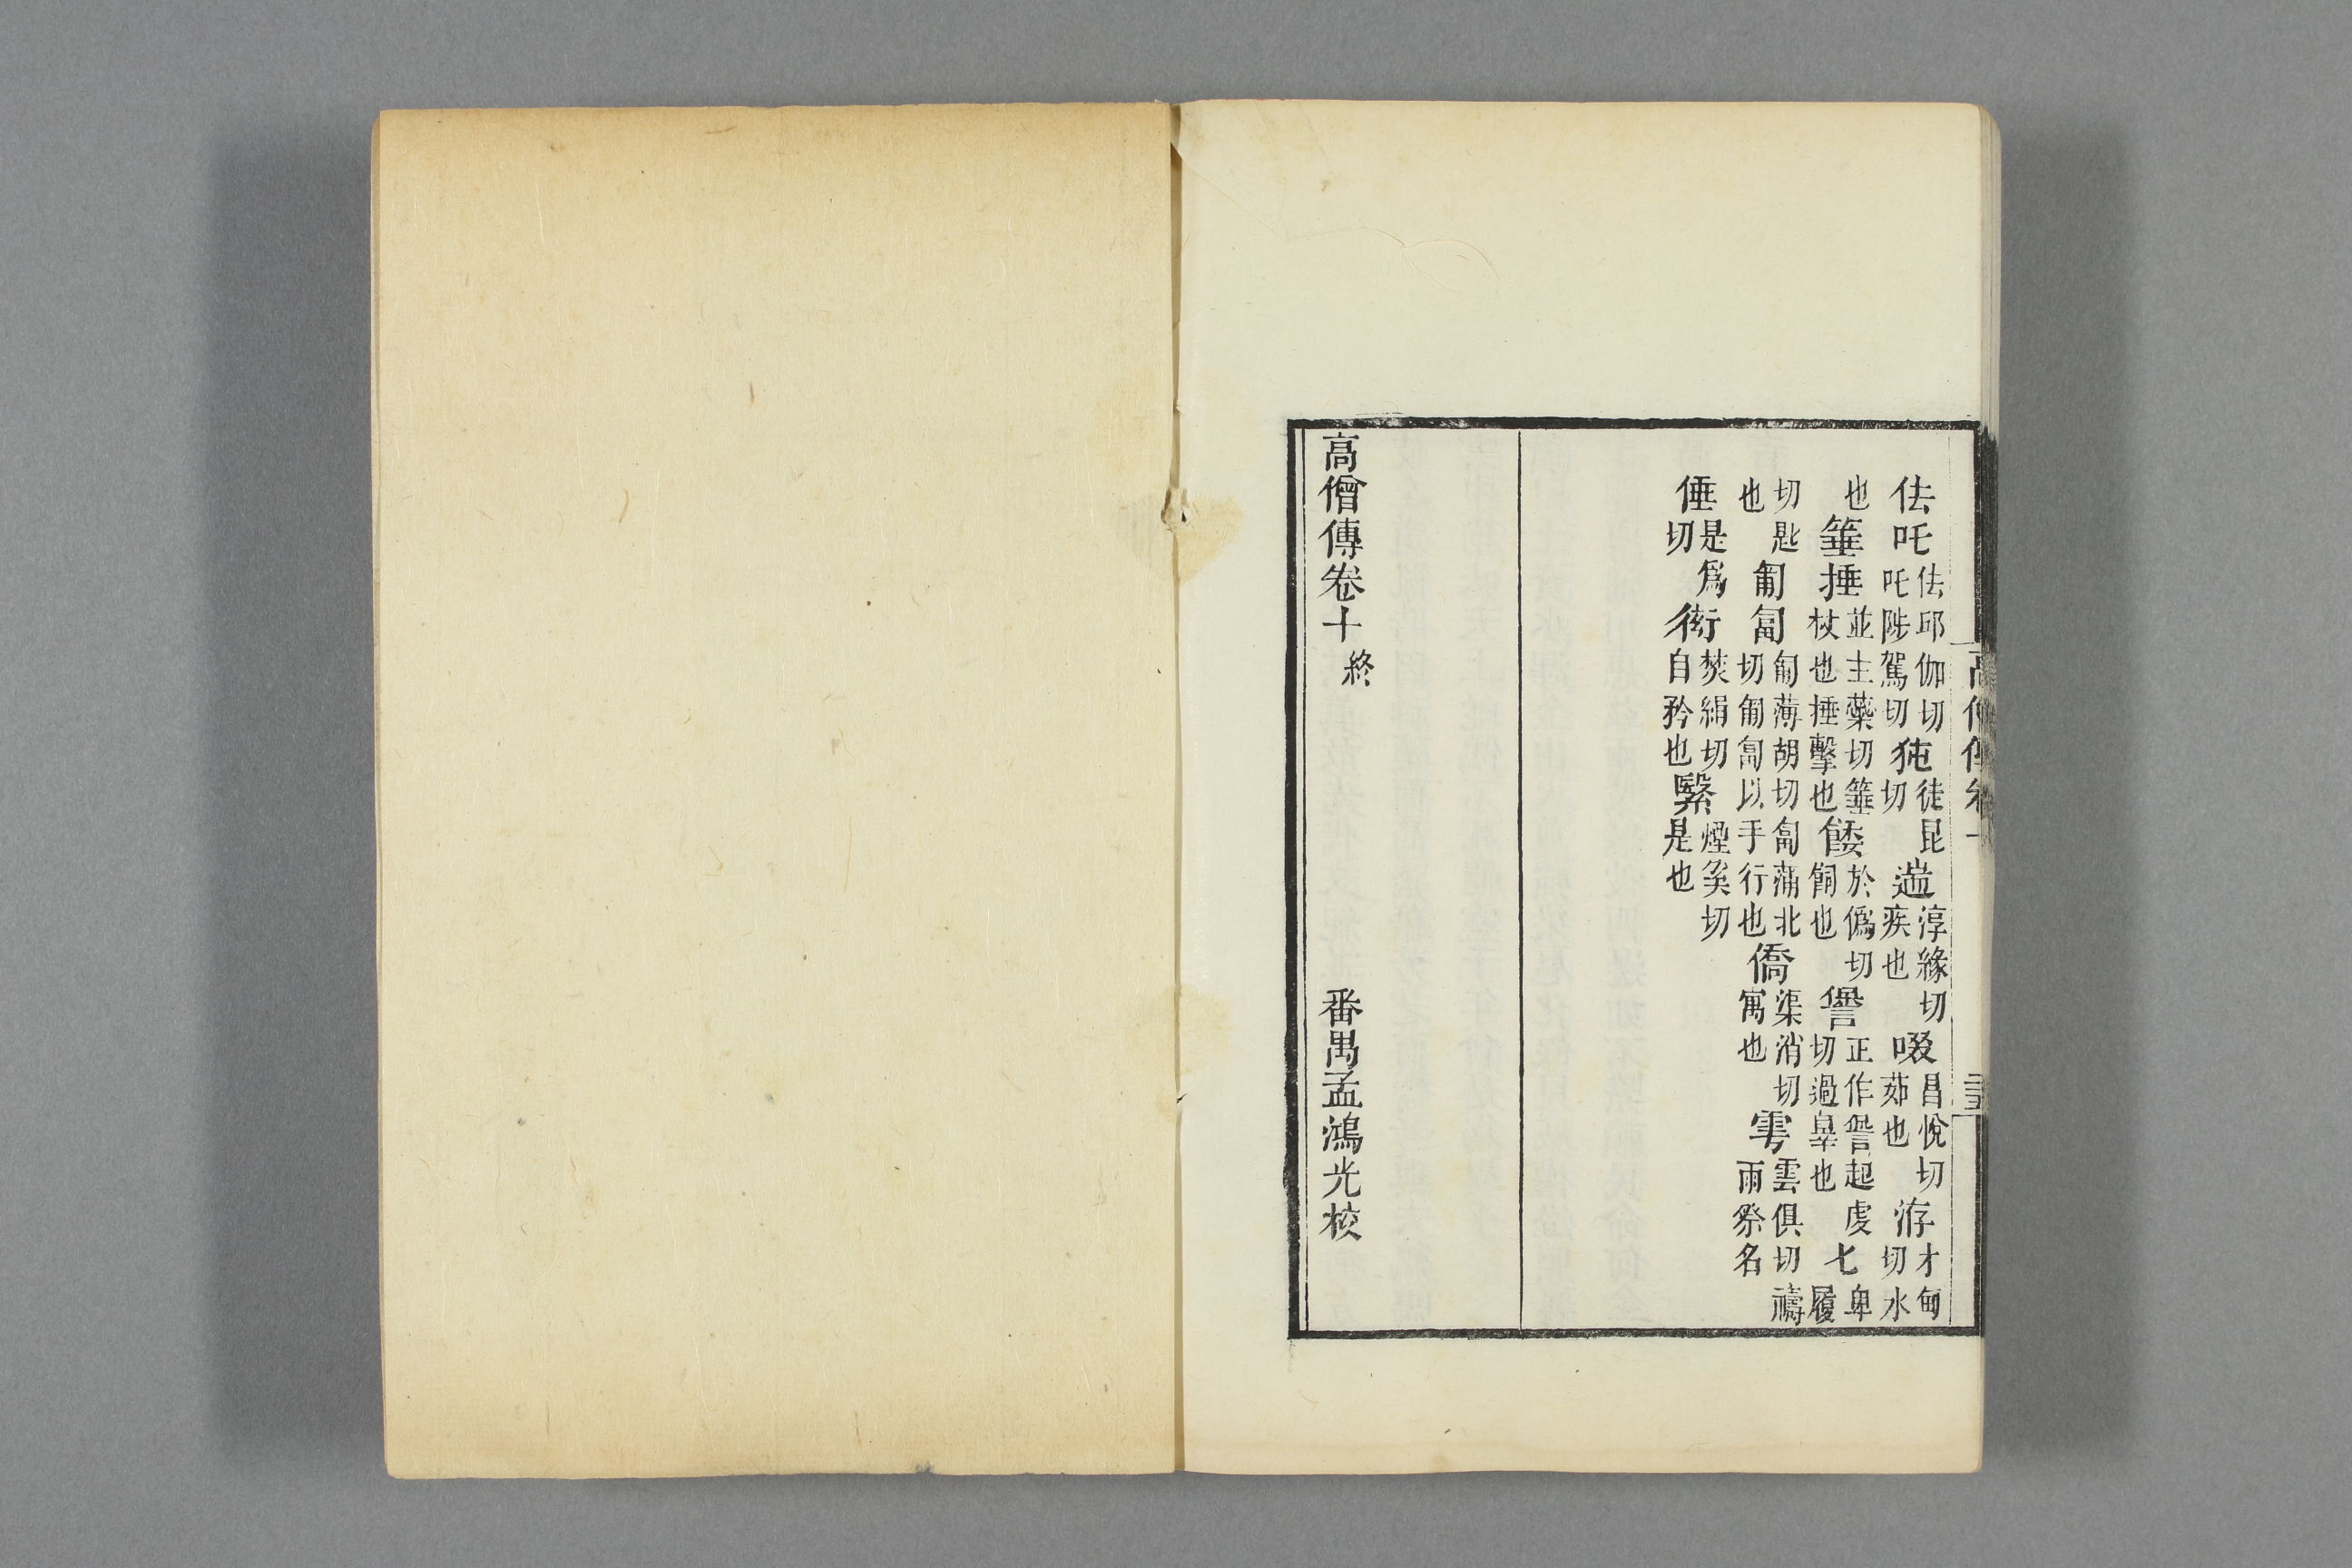 佉吒佉邱伽切吒陟駕切㹠徒昆切遄淳緣切疾也啜昌悅切茹也洊才甸切水
也箠捶並主蘂切箠杖也捶擊也餧於僞切飼也正作諐起虔切過辠也匕卑履
切匙也匍匐匍薄胡切匐蒲北切匍匐以手行也僑渠消切寓也雩雲俱切禱雨祭名
倕是爲切衒熒絹切自矜也繄煙奚切是也
高僧傳卷十終 番禺孟鴻光校